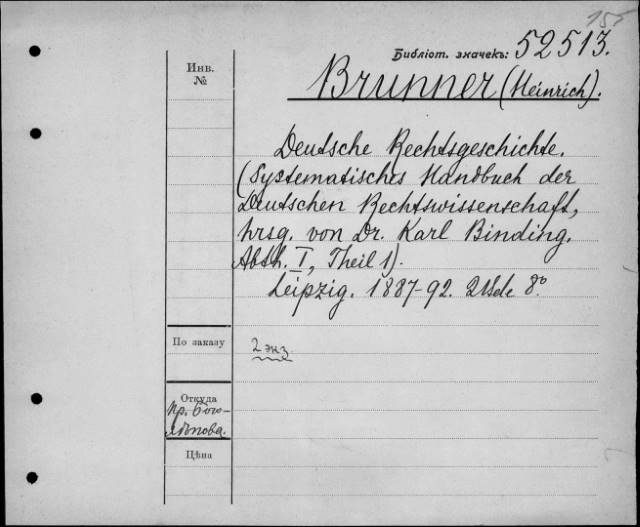 155
Библіот. значекъ: 52513.
Инв.
№
Brunner (Heinrich).
Deutsche Rechtsgeschichte.
(Systematisches Handbuch der
Deutschen Rechtswissenschaft,
hrsg. von Dr. Karl Binding.
Abth. I, Theil 1).
Leipzig. 1887-92. 2 Bde 8°.
По заказу
2 экз
Откуда
Пр. Бого-
лѣпова.
Цѣна